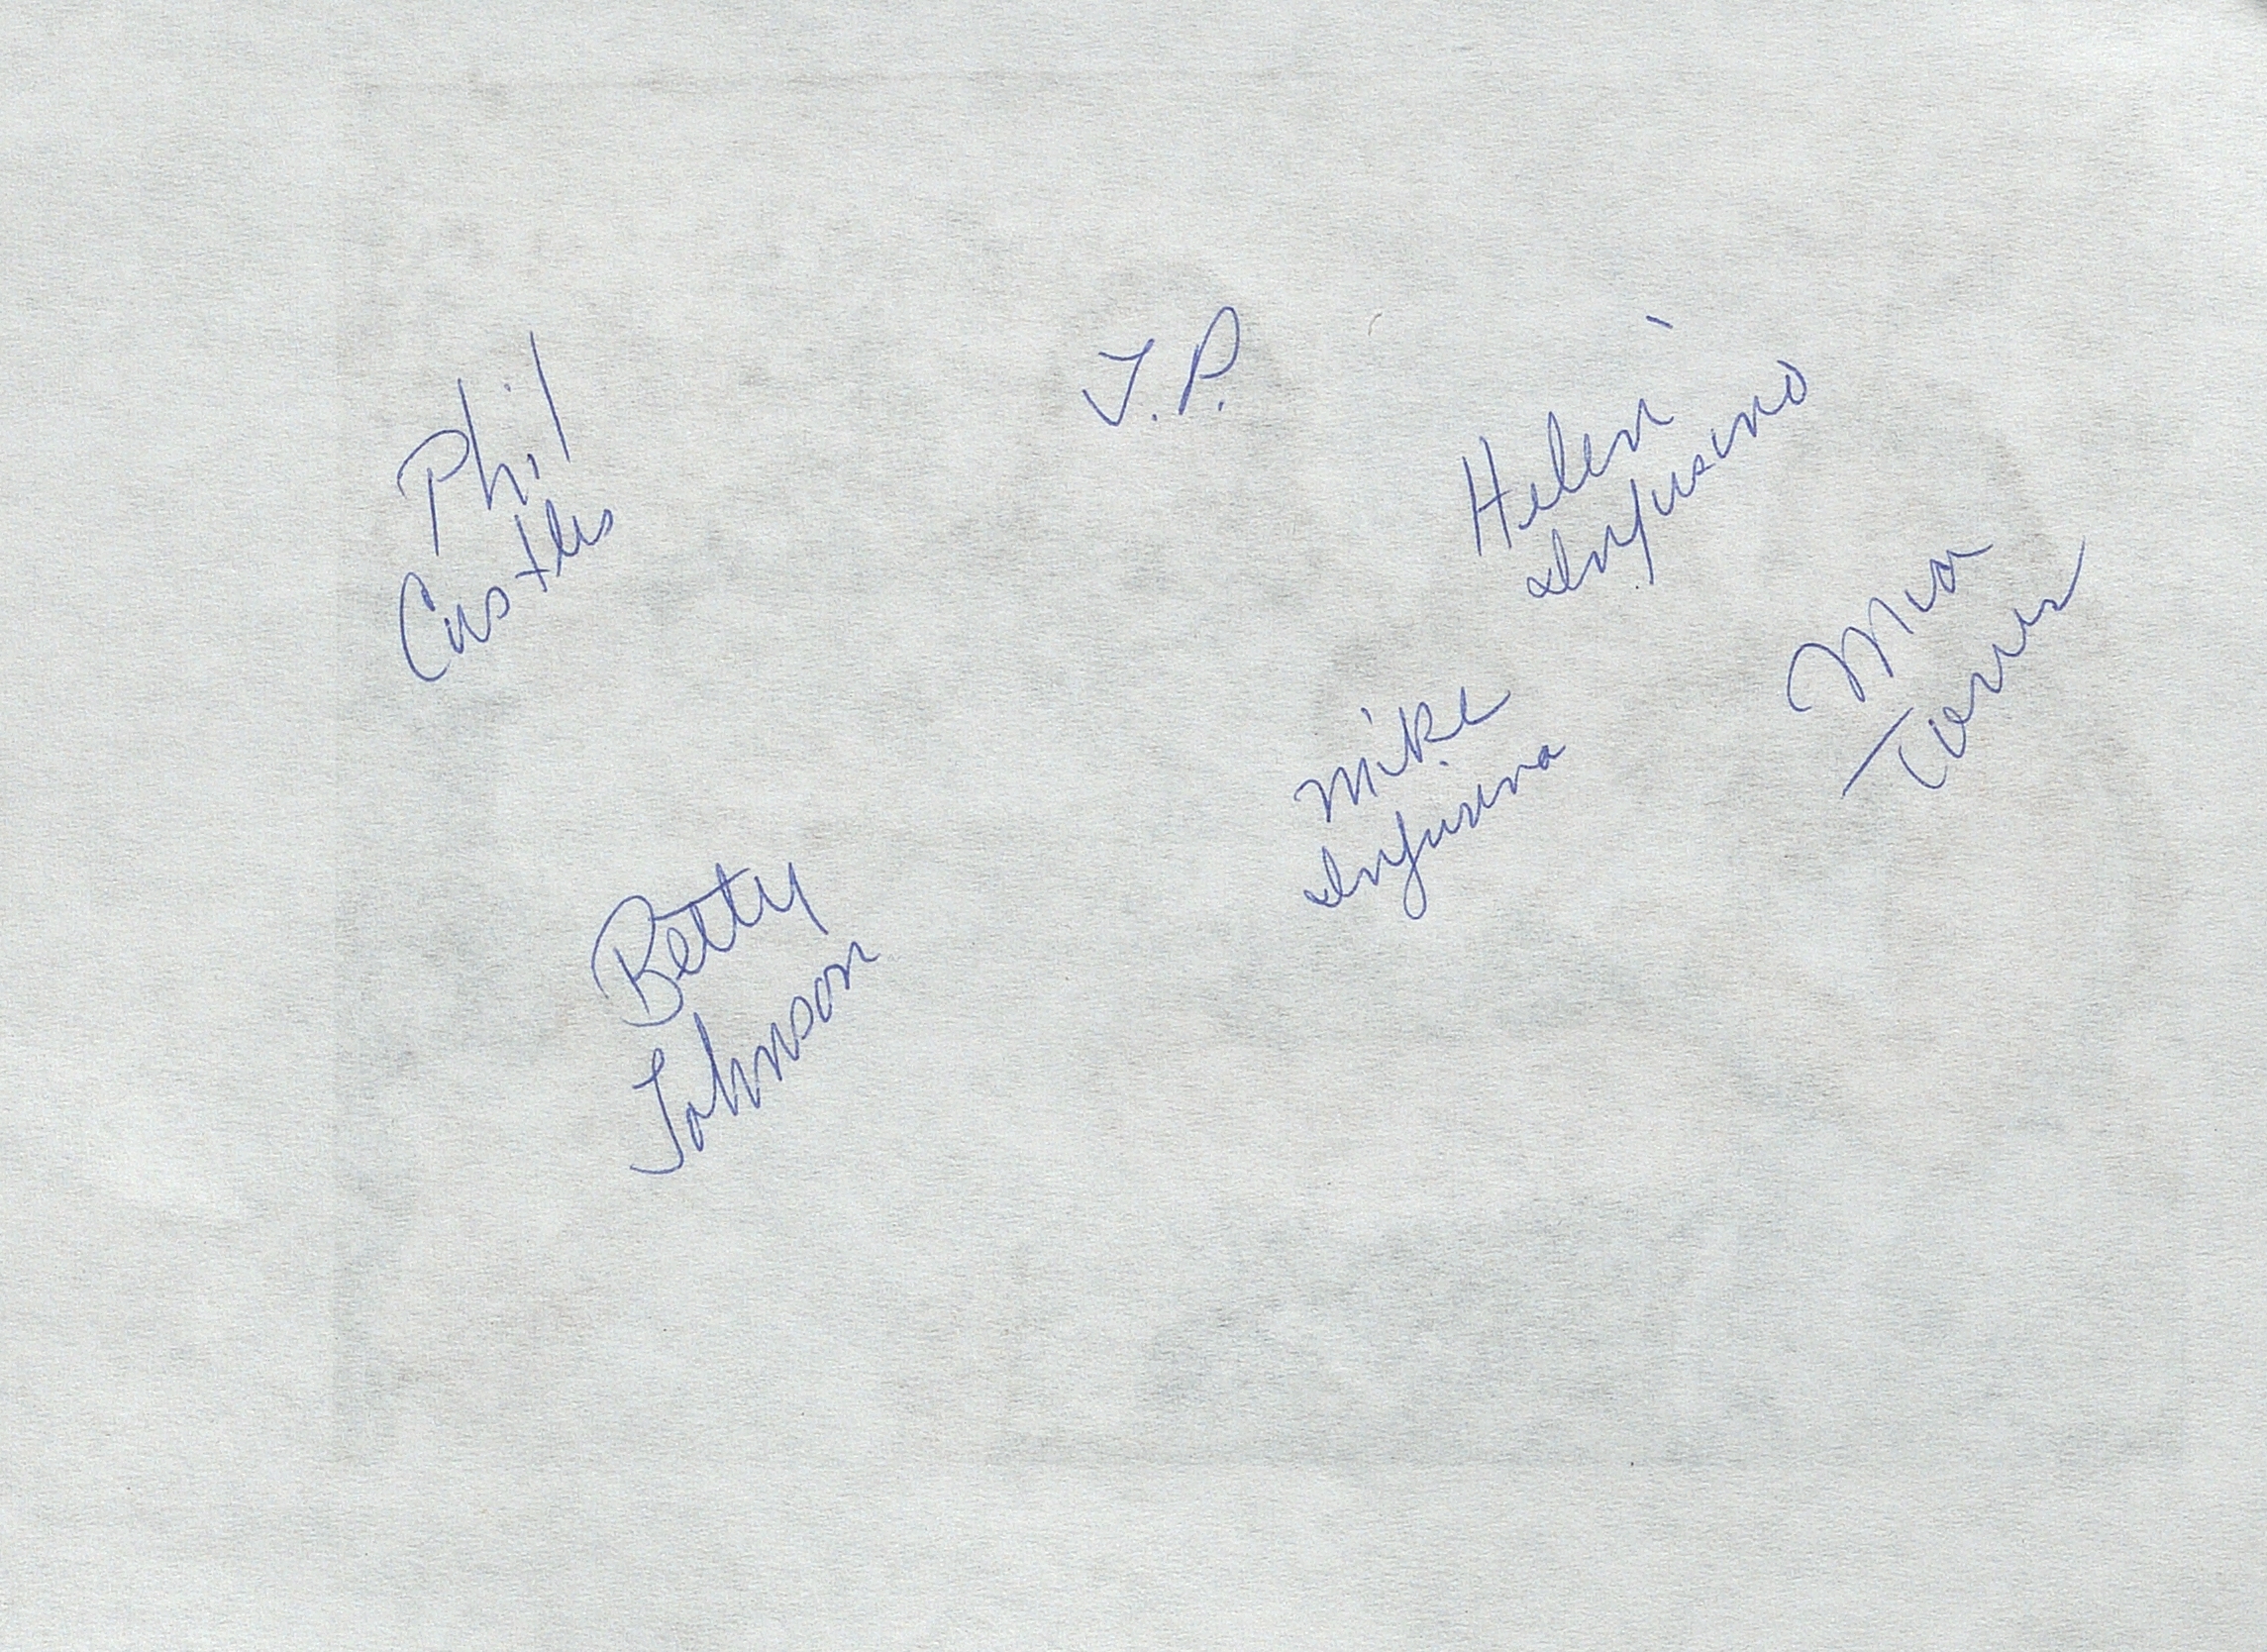 Phil
Castles
J.P.
Helen
Infusino
Mike
Infusino
Mia
Torres
Betty
Johnson